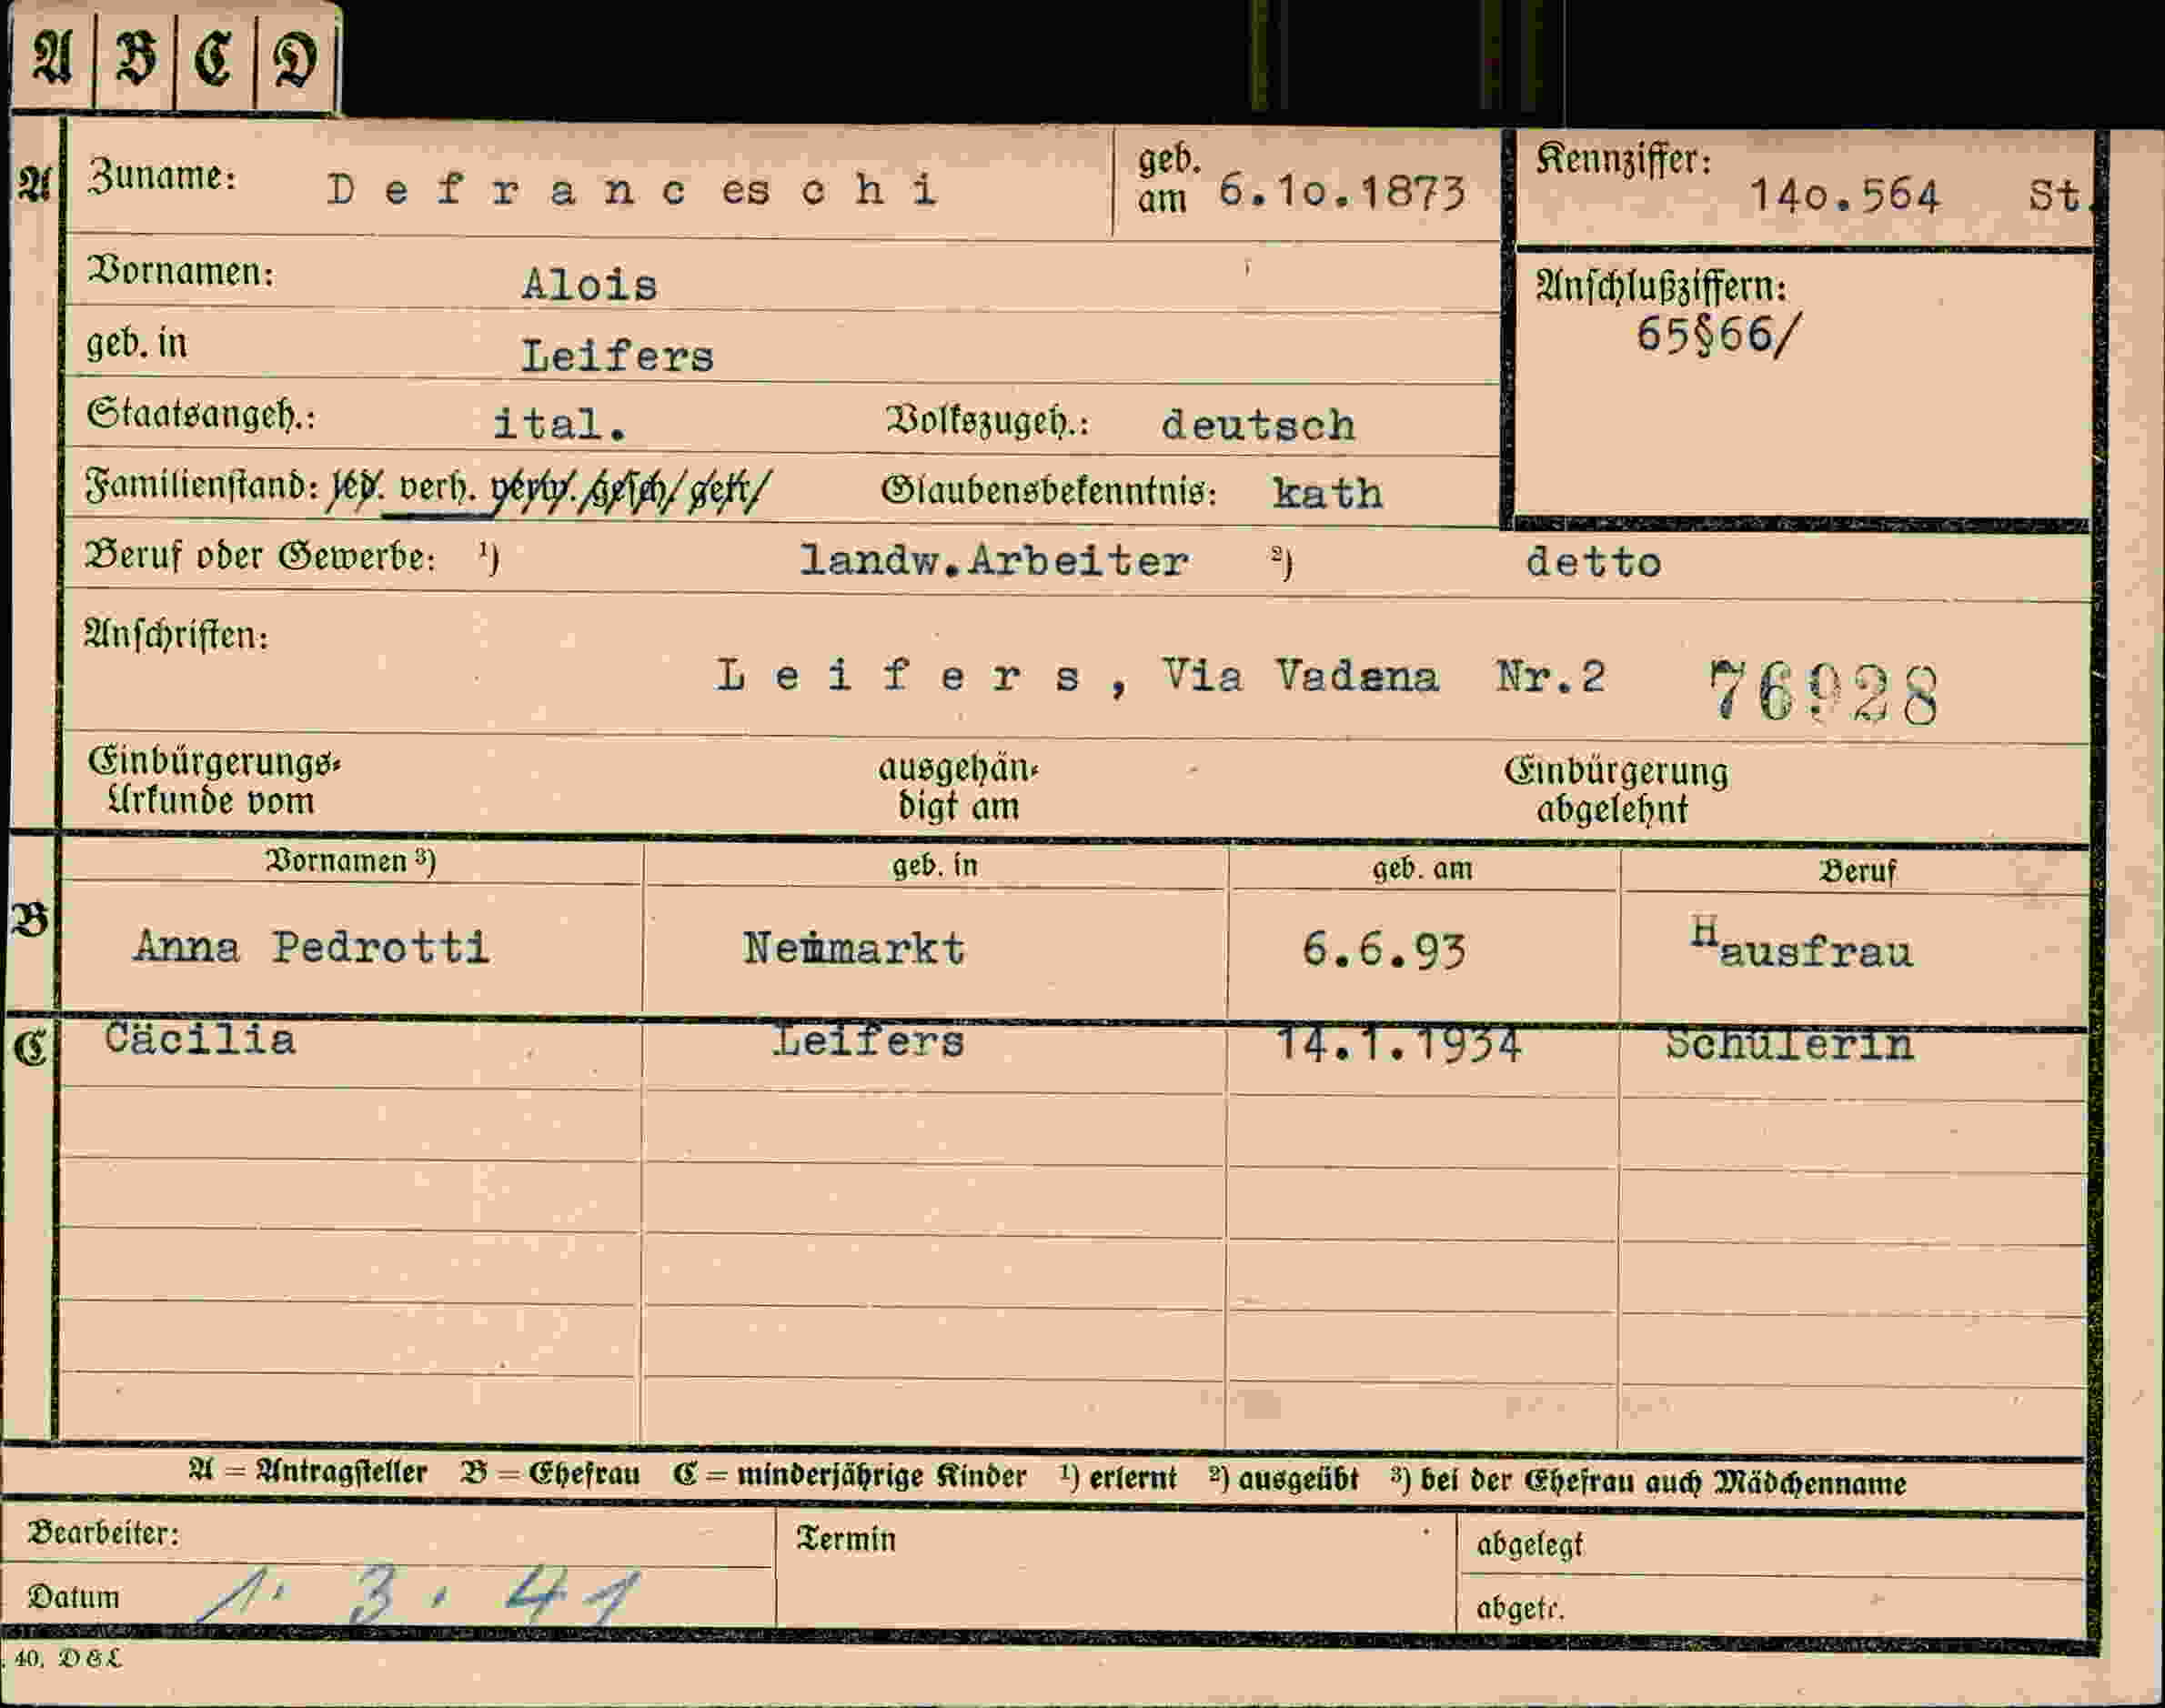 A B C D
A Zuname: Defranceschi geb. am 6.10.1873 Kennziffer: 140.564 St.
Vornamen: Alois Anschlußziffern:
65§66/
geb. in Leifers
Staatsangeh.: ital. Volkszugeh.: deutsch
Familienstand: led. verh. verw. gesch/ getr/ Glaubensbekenntnis: kath
Beruf oder Gewerbe: ¹) landw.Arbeiter ²) detto
Anschriften:
Leifers, Via Vadena Nr.2 76928
Einbürgerungs- ausgehän- Einbürgerung
Urkunde vom digt am abgelehnt
Vornamen ³) geb. in geb. am Beruf
B Anna Pedrotti 6.6.93 Hausfrau
C Cäcilia Leifers 14.1.1934 Schülerin
A = Antragsteller B = Ehefrau C = minderjährige Kinder ¹) erlernt ²) ausgeübt ³) bei der Ehefrau auch Mädchenname
Bearbeiter: Termin abgelegt
Datum 1. 3. 41 abgetr.
40, D&L